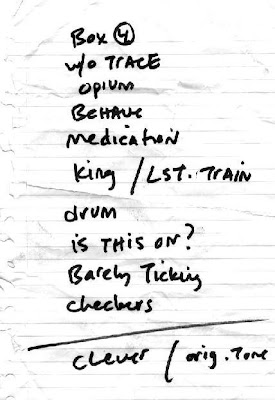 Box 4
w/o TRACE
opium
BEHAVE
medication
King / LST. TRAIN
drum
is THIS ON?
Barely Ticking
checkers
clever / orig. Tone